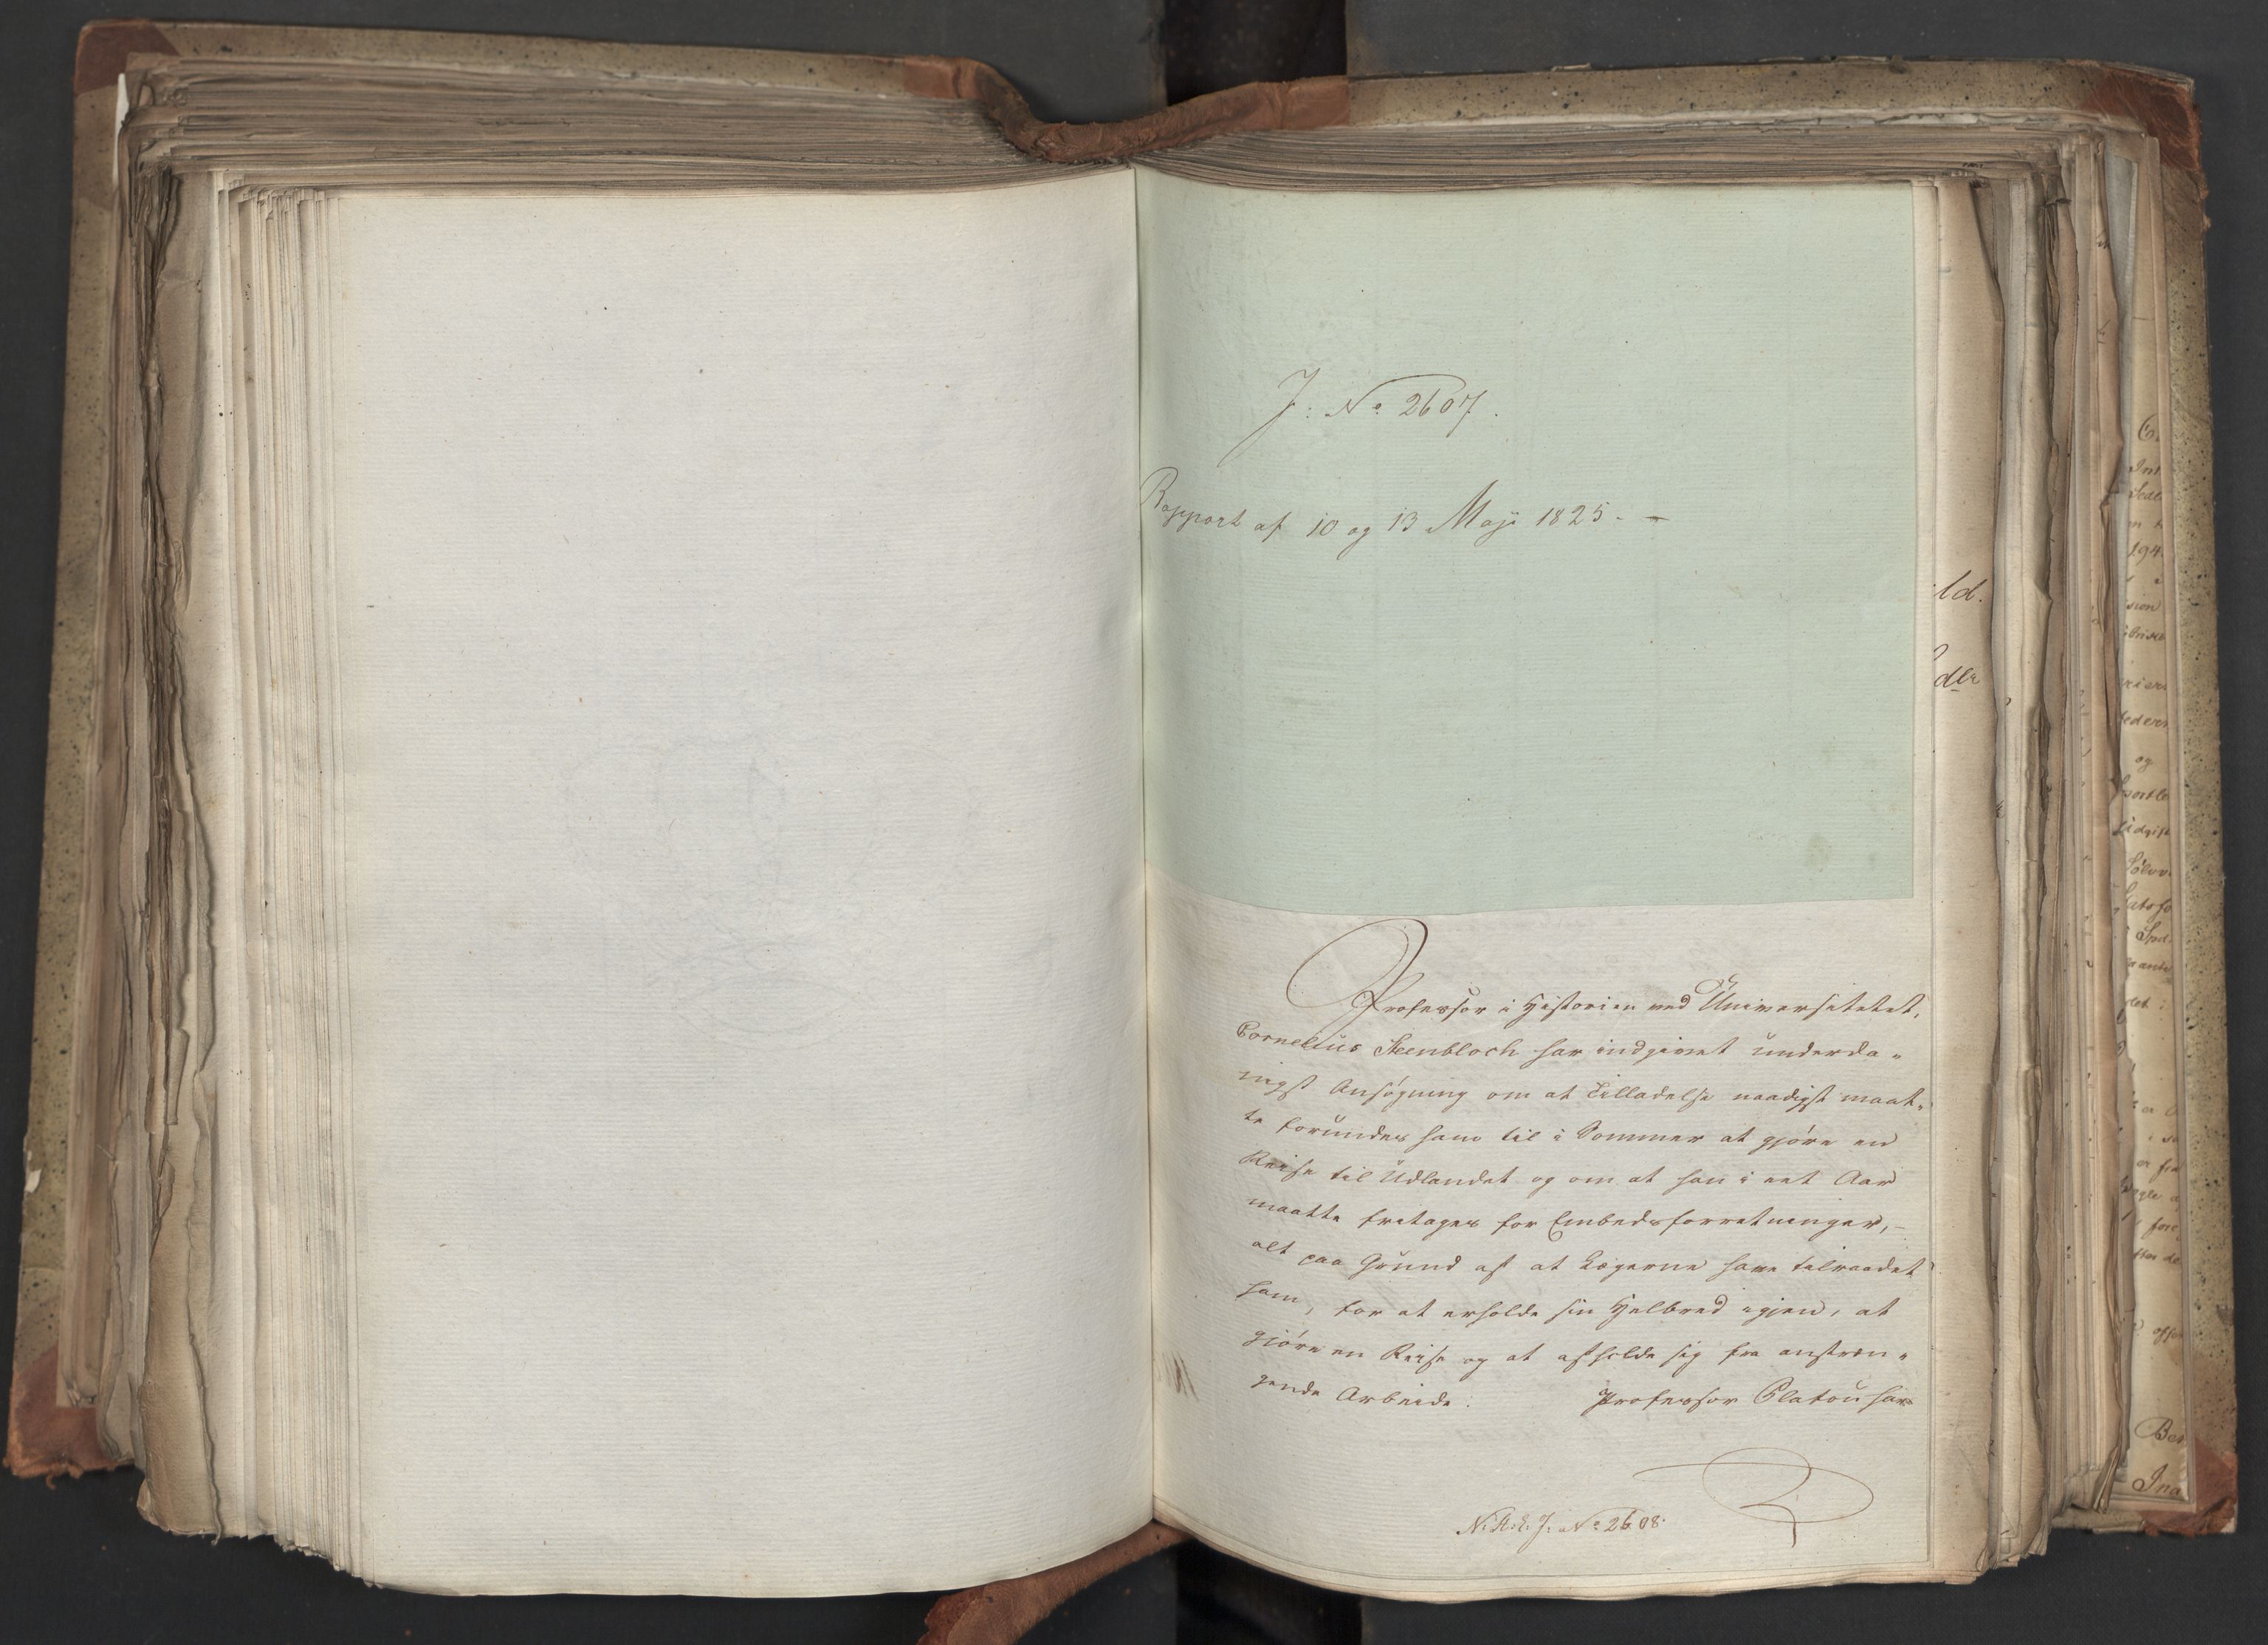 J: No 2607.
Rapport af 10 og 13 Maji 1825. -
Professor i Historien ved Universitetet,
Cornelius Steenbloch har indgivet underda-
nigst Ansøgning om at Tilladelse naadigst maat-
te forundes ham til i Sommer at gjøre en
Reise til Udlandet og om at han i eet Aar
maatte fritages for Embedsforretninger, -
alt paa Grund af at Lægerne have tilraadet
ham, for at erholde sin Helbred igjen, at
gjøre en Reise og at afholde sig fra anstræn-
gende Arbeide. Professor Platou har
N: R: S: J: No 2608.
ld.
dle